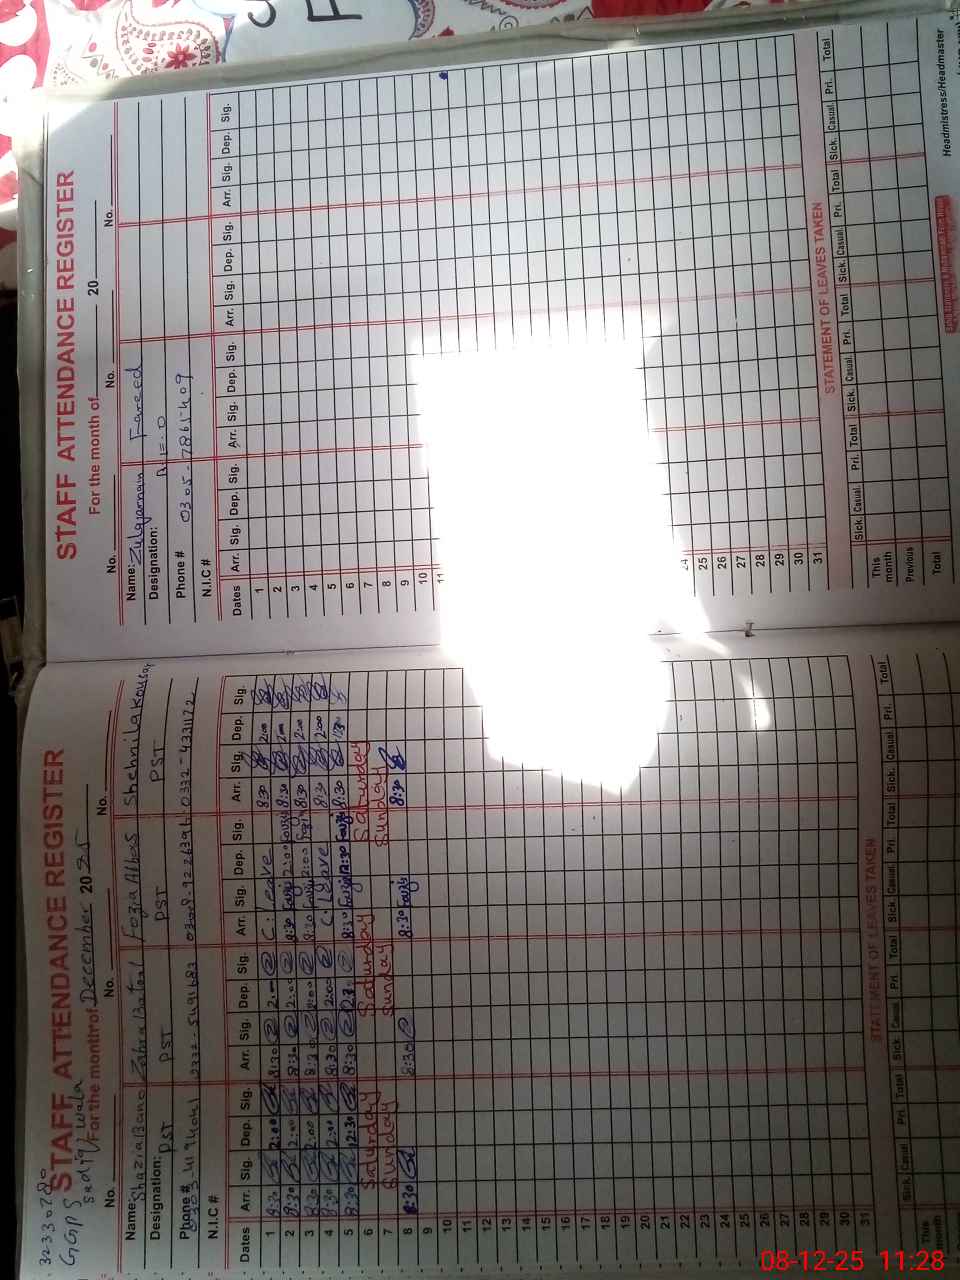 32330780
GGPS
STAFF ATTENDANCE REGISTER
sadiq wala
For the month of December 2025
No. No. No.
Name: Shazia Bano Zahra Batool Fozia Abbas Shehnila Kousar
Designation: PST PST PST PST
Phone # 0332-4331172
N.I.C #
Dates Arr. Sig. Dep. Sig. Arr. Sig. Dep. Sig. Arr. Sig. Dep. Sig. Arr. Sig. Dep. Sig.
1 8:30 2:00 8:30 2:00 C. Leave 8:30 2:00
2 8:30 2:00 8:30 2:00 8:30 2:00 8:30 2:00
3 8:30 2:00 8:30 2:00 8:30 2:00 8:30 2:00
4 8:30 2:00 8:30 2:00 C. Leave 8:30 2:00
5 8:30 12:30 8:30 8:30 12:30 8:30
6 Saturday Saturday Saturday Saturday
7 Sunday Sunday Sunday Sunday
8 8:30 8:30 8:30 8:30
9
10
11
12
13
14
15
16
17
18
19
20
21
22
23
24
25
26
27
28
29
30
31
STATEMENT OF LEAVES TAKEN
Sick. Casual Pri. Total Sick. Casual Pri. Total Sick. Casual. Pri. Total Sick. Casual Pri. Total
This month
Previous
Total
STAFF ATTENDANCE REGISTER
For the month of 20
No. No. No.
Name: Zulqarnain Fareed
Designation:
Phone #
N.I.C #
Dates Arr. Sig. Dep. Sig. Arr. Sig. Dep. Sig. Arr. Sig. Dep. Sig. Arr. Sig. Dep. Sig.
1
2
3
4
5
6
7
8
9
10
11
24
25
26
27
28
29
30
31
STATEMENT OF LEAVES TAKEN
Sick. Casual. Pri. Total Sick. Casual. Pri. Total Sick. Casual. Pri. Total Sick. Casual. Pri. Total
This month
Previous
Total
Headmistress/Headmaster
08-12-25 11:28